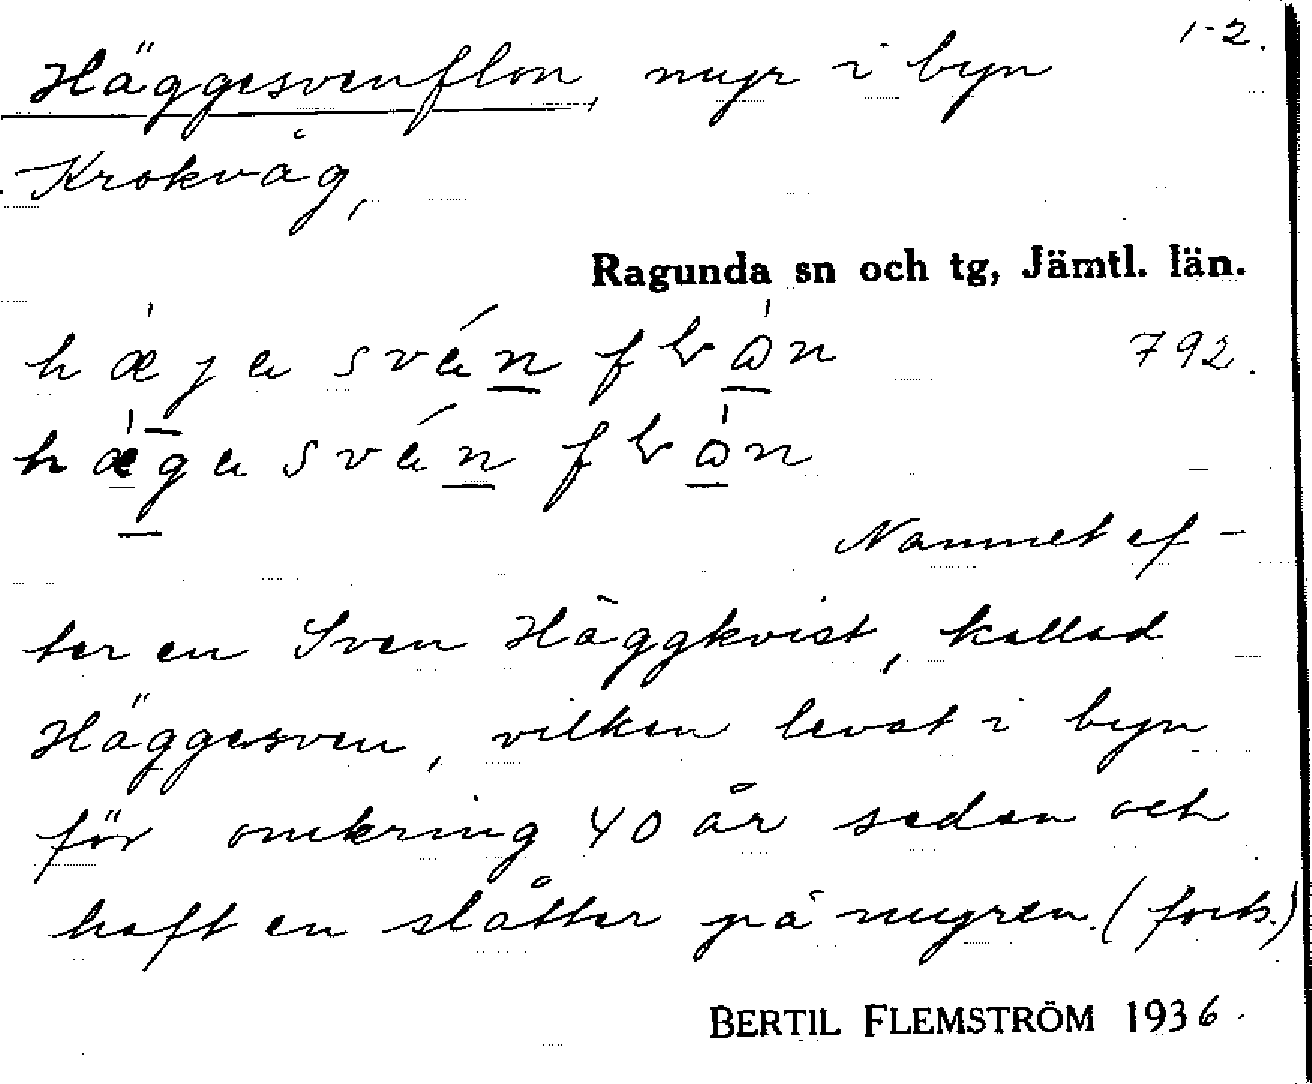 1-2.
Häggesvenflon, myr i byn
Krokvåg,
Ragunda sn och tg, Jämtl. län.
792.
Namnet ef-
ter en Sven Häggkvist, kallad
Häggesven, vilken levat i byn
för omkring 40 år sedan och
haft en slåtter på myren. (forts.)
BERTIL FLEMSTRÖM 1936.